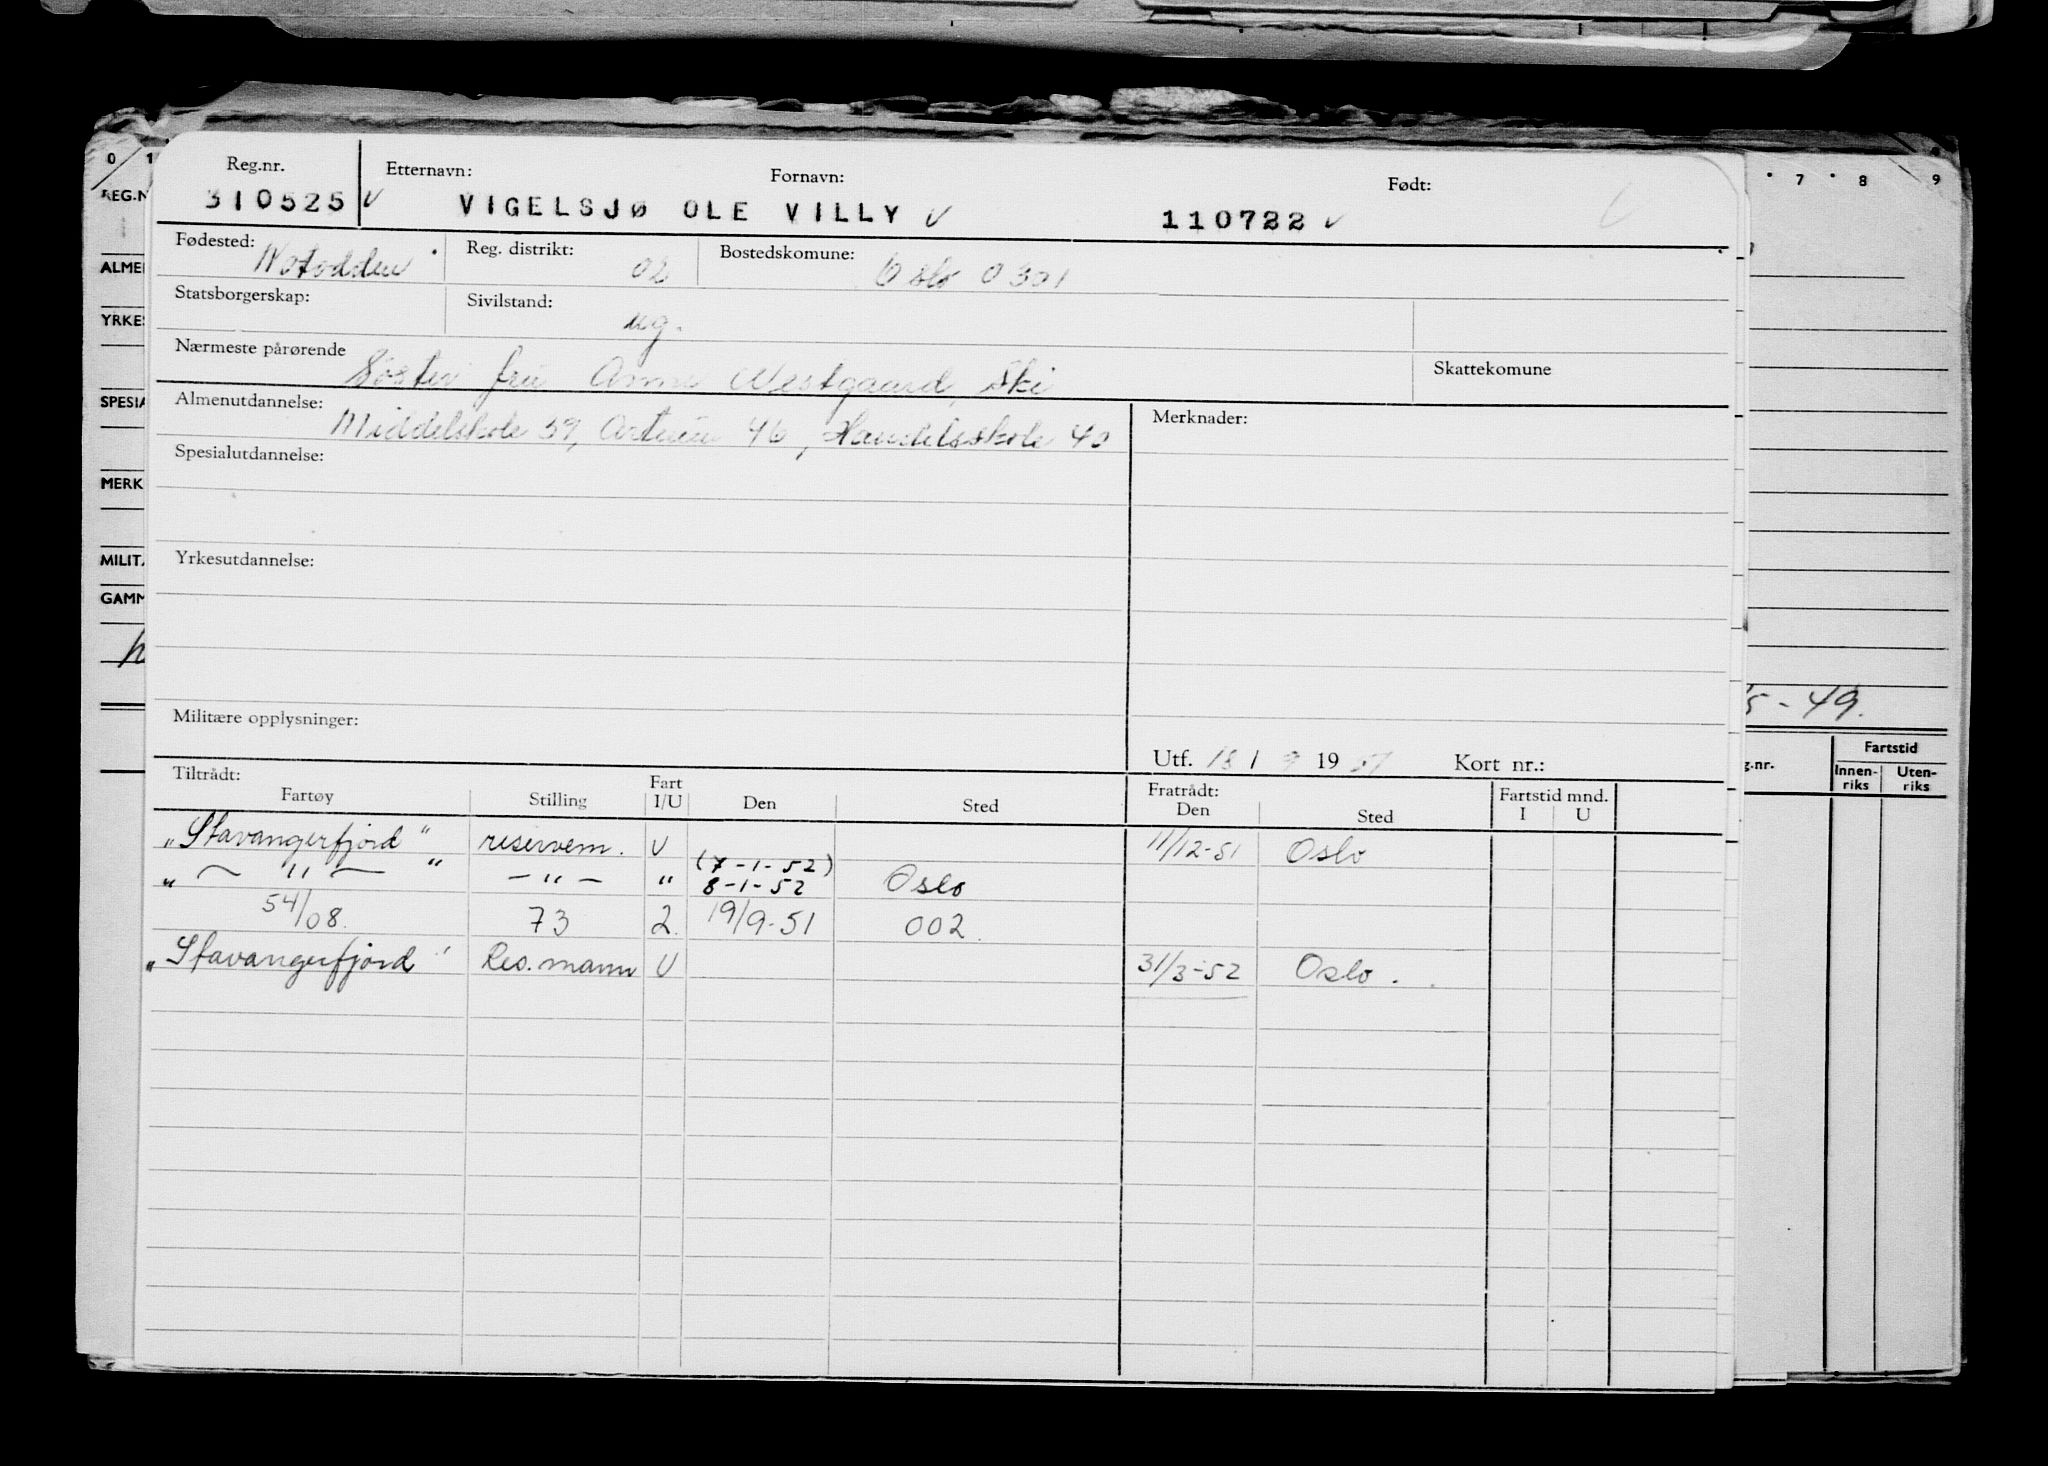 Reg.nr. Etternavn: Fornavn: Født:
310525 V VIGELSJØ OLE VILLY V 110722 V
Fødested: Notodden Reg. distrikt: 02 Bostedskomune: Oslo 0301
Statsborgerskap: Sivilstand: ug.
Nærmeste pårørende Søster fru Westgaard, Ski Skattekomune
Almenutdannelse: Middelskole 39, Artium 46, Handelsskole 40 Merknader:
Spesialutdannelse:
Yrkesutdannelse:
Militære opplysninger:
Utf. 18 / 9 19 Kort nr.:
Tiltrådt: Fratrådt:
Fartøy Stilling Fart I/U Den Sted Den Sted Fartstid mnd. I U
"Stavangerfjord" reservem. U 11/12-51 Oslo
(7-1-52)
„ — " — " — " — " 8-1-52 Oslo
54/08. 73 2. 19/9-51 002.
"Stavangerfjord" Res.mann U 31/3-52 Oslo.
0 1
REG.N
ALMEN
YRKES
SPESIA
MERK
MILIT
GAMM
7 8 9
5-49.
g.nr. Fartstid
Innen-riks Uten-riks